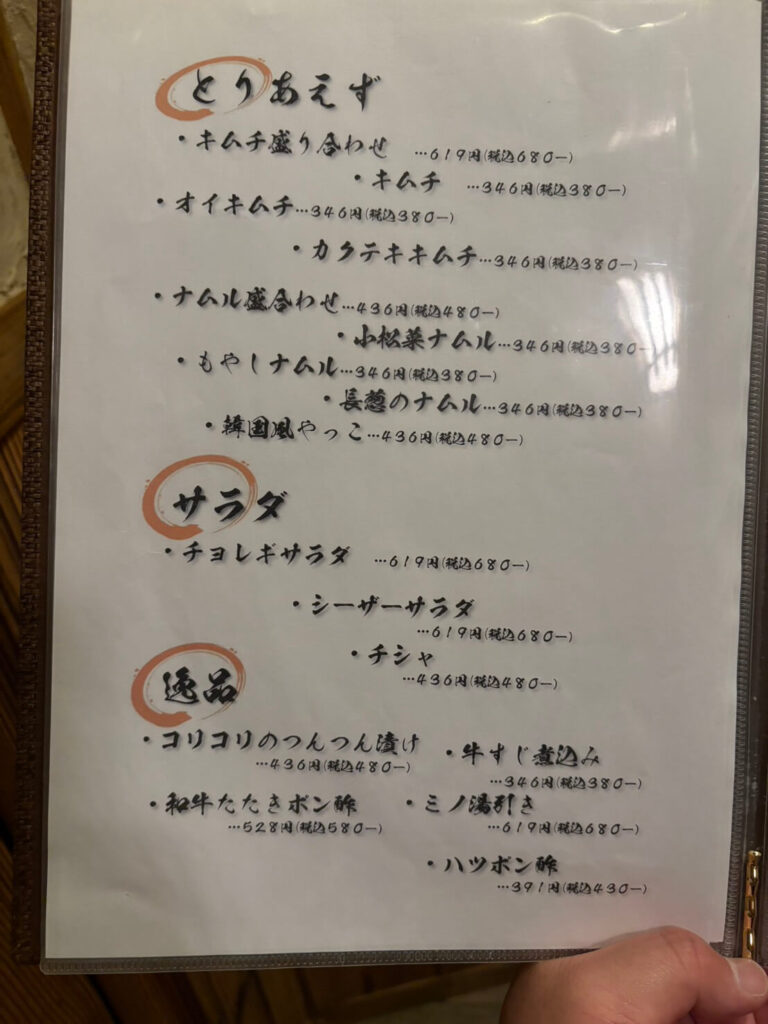 とりあえず
・キムチ盛り合わせ …619円(税込680ー)
・キムチ …346円(税込380ー)
・オイキムチ…346円(税込380ー)
・カクテキキムチ…346円(税込380ー)
・ナムル盛合わせ…436円(税込480ー)
・小松菜ナムル…346円(税込380ー
・もやしナムル…346円(税込380ー)
・長葱のナムル…346円(税込380ー)
・韓国風やっこ…436円(税込480ー)
サラダ
・チョレギサラダ …619円(税込680ー)
・シーザーサラダ
…619円(税込680ー)
・チシャ
…436円(税込480ー)
逸品
・コリコリのつんつん漬け
…436円(税込480ー)
・牛すじ煮込み
…346円(税込380ー)
・和牛たたきポン酢
…528円(税込580ー)
・ミノ湯引き
…619円(税込680ー)
・ハツポン酢
…391円(税込430ー)